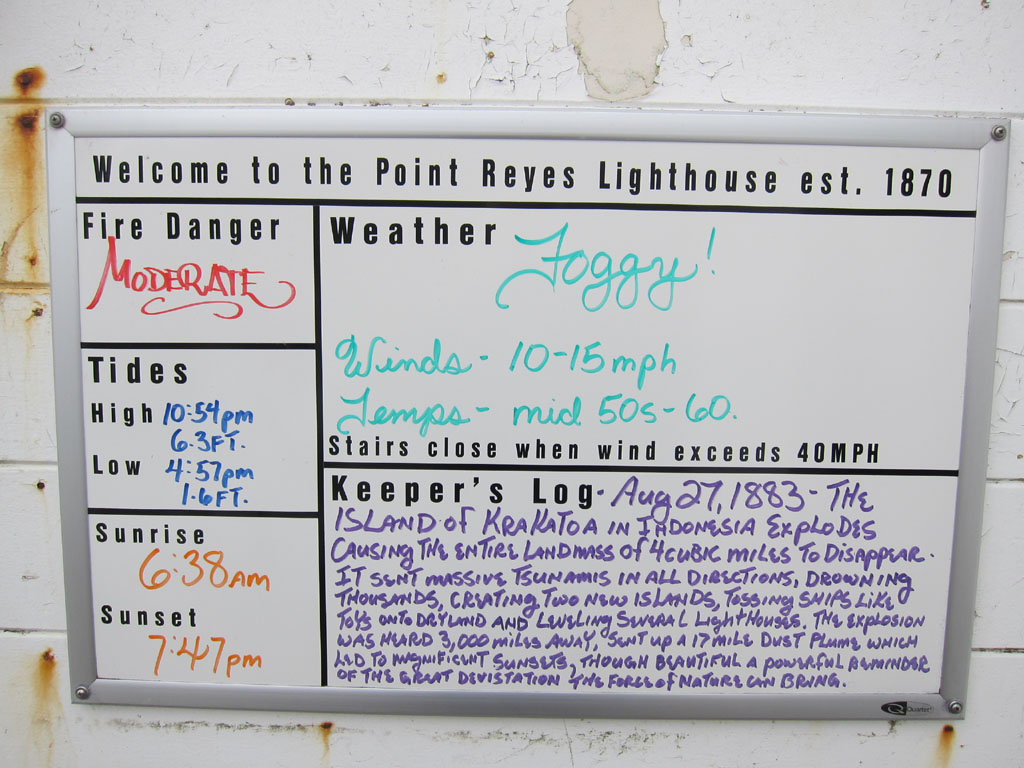 Welcome to the Point Reyes Lighthouse est. 1870
Fire Danger
MODERATE
Tides
High 10:54pm
6.3FT.
Low 4:57pm
1.6FT.
Sunrise
6:38AM
Sunset
7:47pm
Weather Foggy!
Winds - 10-15mph
Temps - mid 50s-60.
Stairs close when wind exceeds 40MPH
Keeper's Log - Aug 27, 1883 - THE
ISLAND of KRAKATOA IN INDONESIA EXPLODES
CAUSING THE ENTIRE LANDMASS OF 4 CUBIC MILES TO DISAPPEAR.
IT SENT MASSIVE TSUNAMIS IN ALL DIRECTIONS, DROWNING
THOUSANDS, CREATING TWO NEW ISLANDS, TOSSING SHIPS LIKE
TOYS ONTO DRYLAND AND LEVELING SEVERAL LIGHTHOUSES. THE EXPLOSION
WAS HEARD 3,000 MILES AWAY, SENT UP A 17 MILE DUST PLUME WHICH
LED TO MAGNIFICENT SUNSETS, THOUGH BEAUTIFUL A POWERFUL REMINDER
OF THE GREAT DEVISTATION THE FORCE OF NATURE CAN BRING.
Quartet